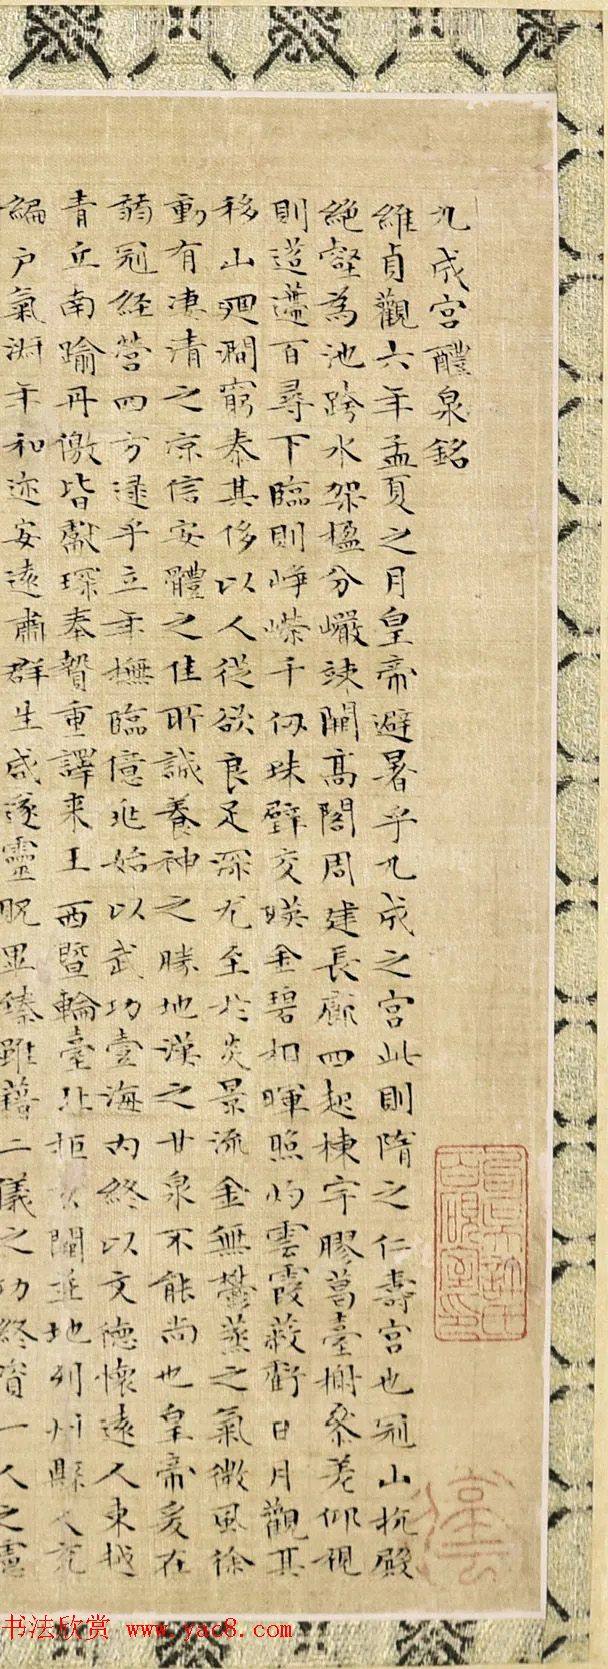 九成宮醴泉銘
維貞觀六年孟夏之月皇帝避暑乎九成之宮此則隋之仁壽宮也冠山抗殿
絶壑為池跨水架楹分巖竦闕高閣周建長廊四起棟宇膠葛臺榭參差仰視
則迢遰百尋下臨則崢嶸千仞珠璧交暎金碧相暉照灼雲霞蔽虧日月觀其
移山廻澗窮泰其侈以人從欲良足深尤至於炎景流金無鬱蒸之氣微風徐
動有凄清之凉信安體之佳所誠養神之勝地漢之甘泉不能尚也皇帝爰在
弱冠經營四方逮乎立年撫臨億兆始以武功壹海內終以文德懷遠人東越
青丘南踰丹徼皆獻琛奉贄重譯来王西暨輪臺北拒玄闕並地列州縣人充
編戶氣淑年和迩安遠肅群生咸遂靈貺畢臻雖藉二儀之功終資一人之慮
书法欣赏 www.yac8.com